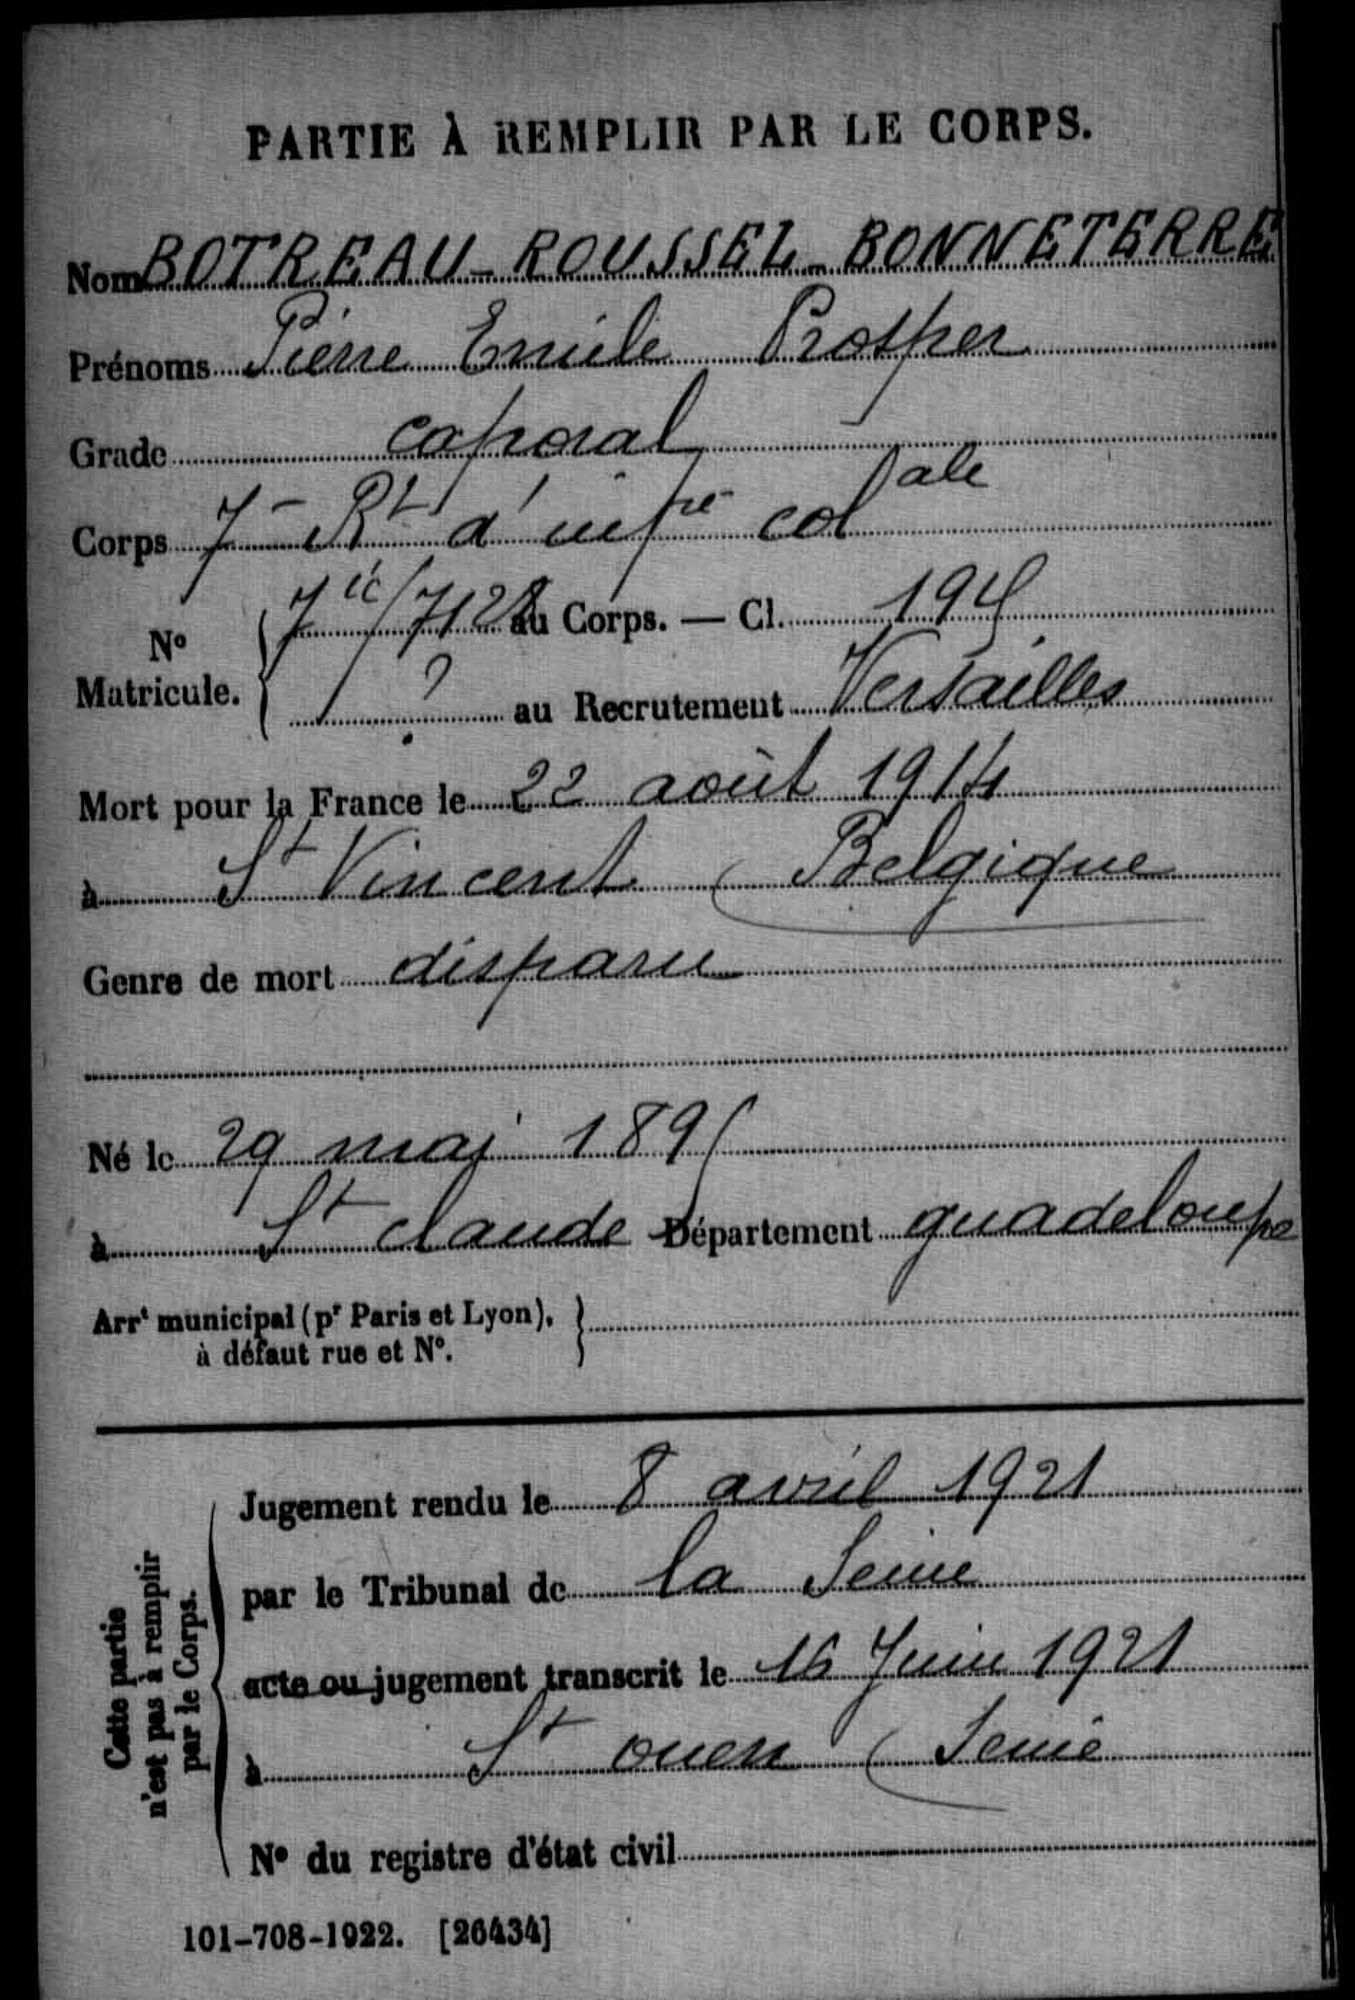 PARTIE À REMPLIR PAR LE CORPS.
Nom BOTREAU-ROUSSEL-BONNETERRE
Prénoms Pierre Emile Prosper
Grade caporal
Corps 7e Rt d'infrie colale
N° Matricule. 7 ic/7128 au Corps. — Cl. 1915
? au Recrutement Versailles
Mort pour la France le 22 août 1914
à St Vincent (Belgique
Genre de mort disparu
Né le 29 mai 1895
à St claude Département guadeloupe
Arrt municipal (pr Paris et Lyon),
à défaut rue et N°.
Cette partie
n'est pas à remplir
par le Corps.
Jugement rendu le 8 avril 1921
par le Tribunal de la Seine
acte ou jugement transcrit le 16 Juin 1921
à St ouen (Seine
N° du registre d'état civil
101-708-1922. [26434]